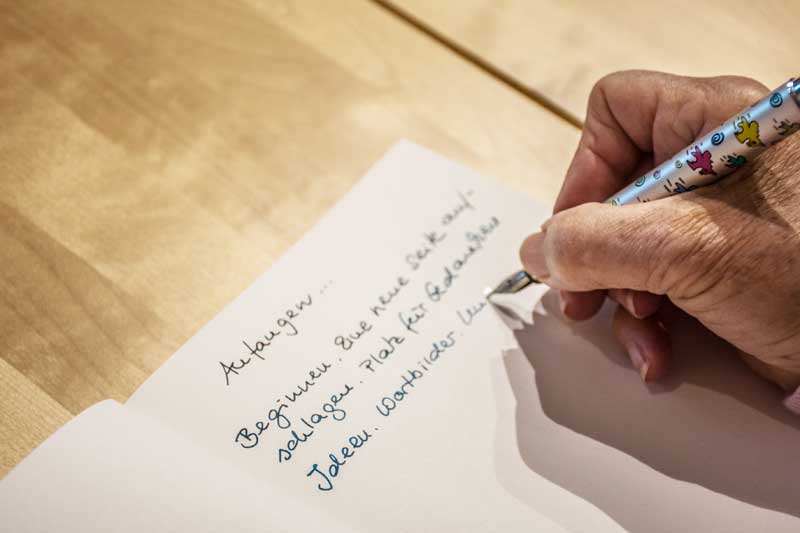 Anfangen...
Beginnen. Eine neue Seite auf-
schlagen. Platz für Gedanken
Ideen. Wortbilder.